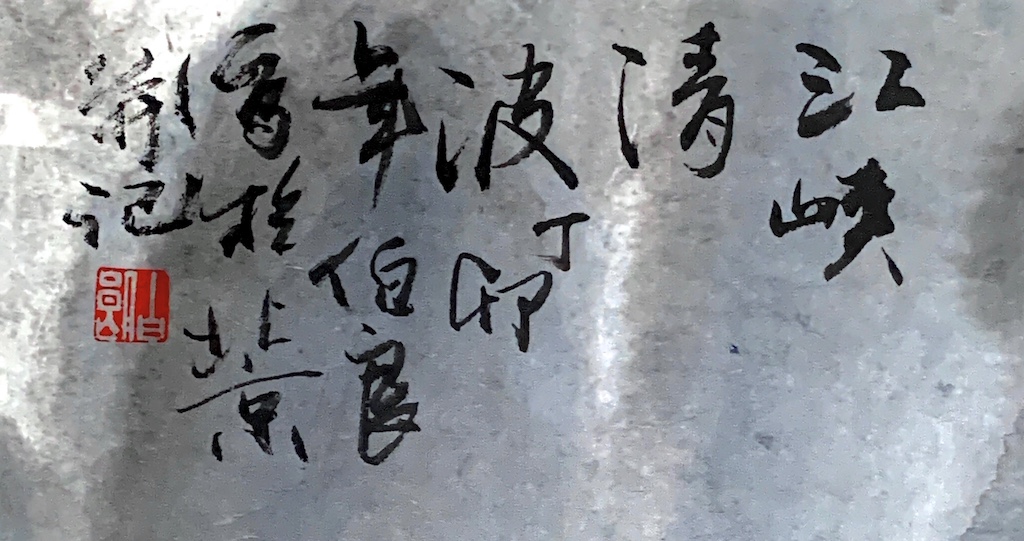 江峡
清
波丁卯
年伯良
写於北京
并记